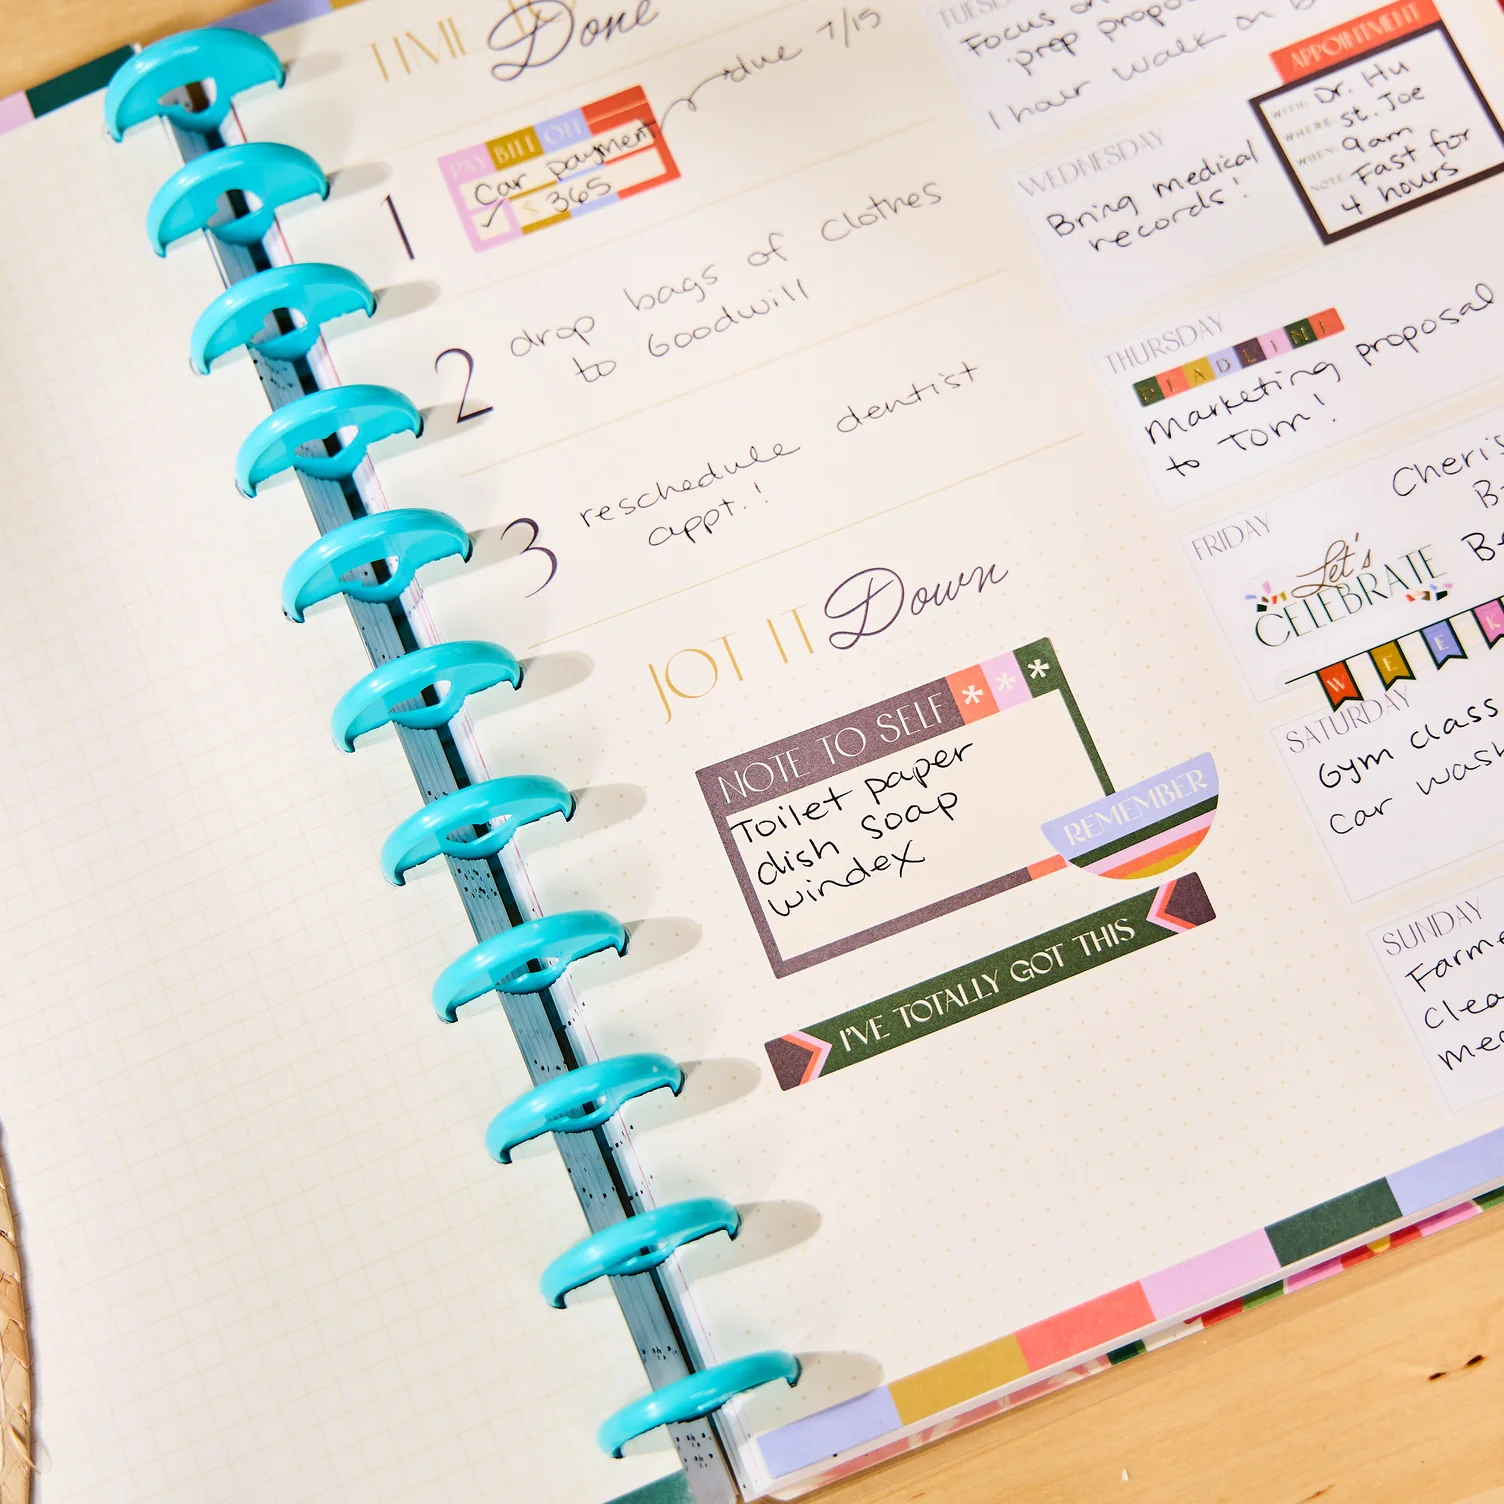 TIME
Done
PAY BILL OF
due 7/15
car payment
✓ $ 365
1
drop bags of clothes
to Goodwill
2
reschedule dentist
appt.!
3
JOT IT Down
NOTE TO SELF ***
Toilet paper
dish soap
windex
REMEMBER
I'VE TOTALLY GOT THIS
Focus on
prep
1 hour walk on
WEDNESDAY
Bring medical
records!
APPOINTMENT
WITH: Dr. Hu
WHERE: St. Joe
WHEN: 9am
NOTE: Fast for
4 hours
THURSDAY
DEADLINE
Marketing proposal
to Tom!
FRIDAY
Let's
CELEBRATE
WEEK
SATURDAY
Gym class
Car wash
SUNDAY